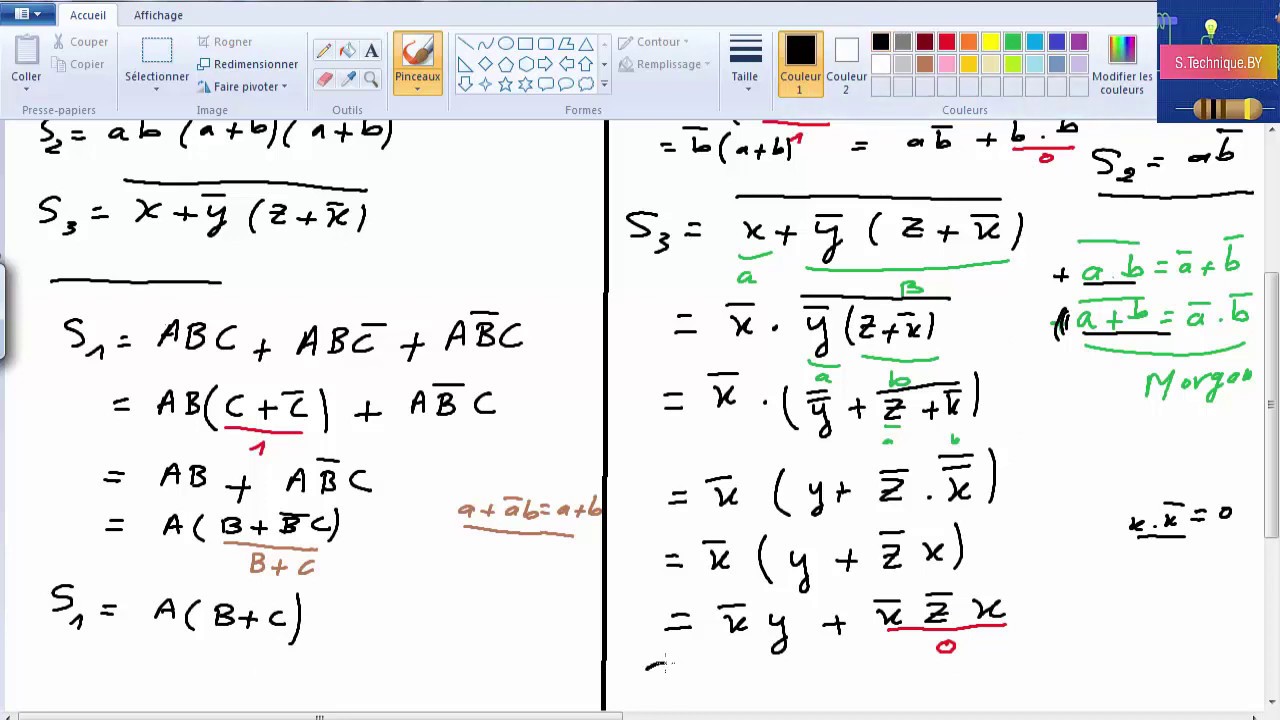 Accueil Affichage
Coller
Couper
Copier
Presse-papiers
Sélectionner
Rogner
Redimensionner
Faire pivoter
Image
A
Outils
Pinceaux
Contour
Remplissage
Formes
Taille
Couleur 1
Couleur 2
Couleurs
Modifier les couleurs
S.Technique.BY
S₃ = x + y̅ (z + x̅)
S₁ = ABC + ABC̅ + AB̅C
= AB(C + C̅) + AB̅C
1
= AB + AB̅C
= A(B + B̅C)
B + C
a + a̅b = a+b
S₁ = A(B+C)
= b̅(a+b) = ab̅ + b.b̅
1
0
S₂ = ab̅
S₃ = x + y̅ (z + x̅)
a
B
= x̅ . y̅(z+x̅)
a
b
= x̅ . (y̿ + z + x̅)
a
b
= x̅ (y + z̅ . x̿)
= x̅ (y + z̅ x)
= x̅ y + x̅ z̅ x
0
+ a.b = a̅ + b̅
a+b = a̅ . b̅
Morgan
x.x̅ = 0